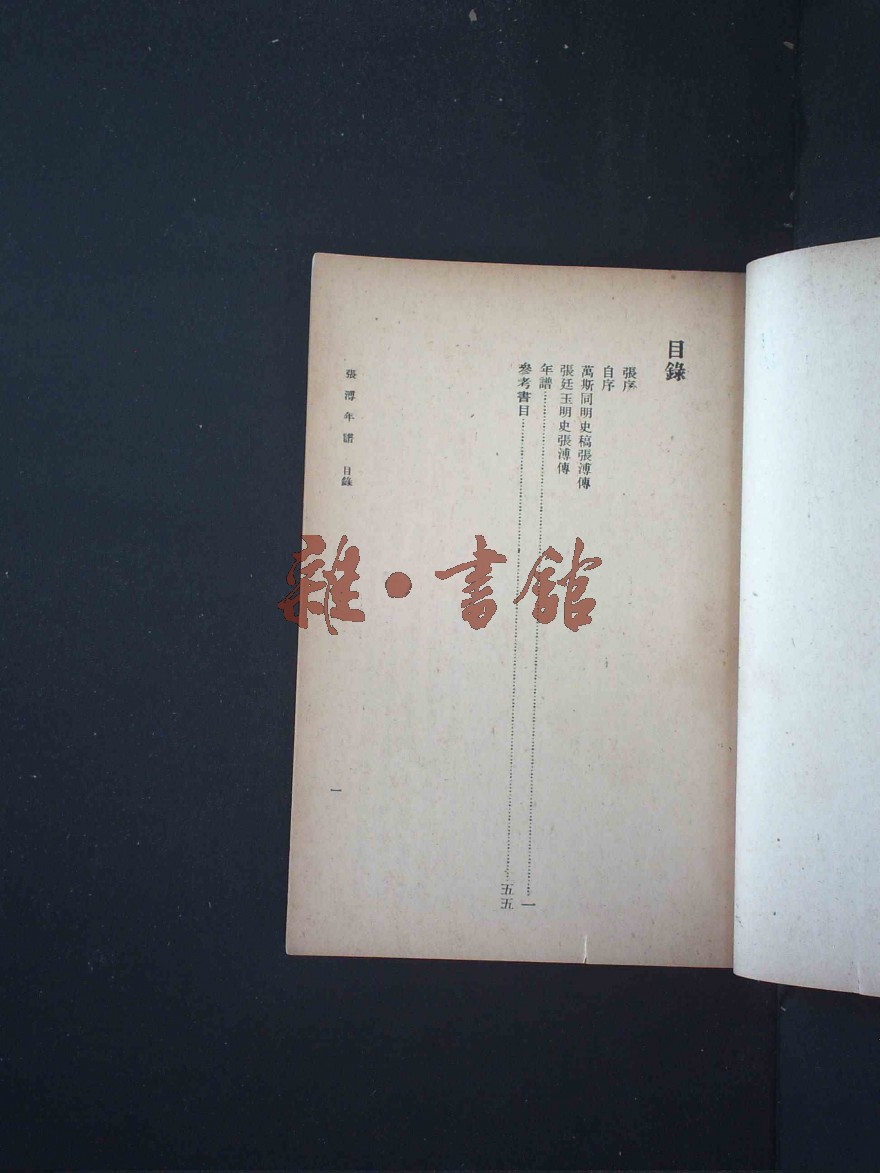 目錄
張序
自序
萬斯同明史稿張溥傳
張廷玉明史張溥傳
年譜⋯⋯⋯⋯⋯⋯⋯⋯⋯⋯一
參考書目⋯⋯⋯⋯⋯⋯⋯⋯⋯⋯五五
張溥年譜 目錄
一
雜·書館